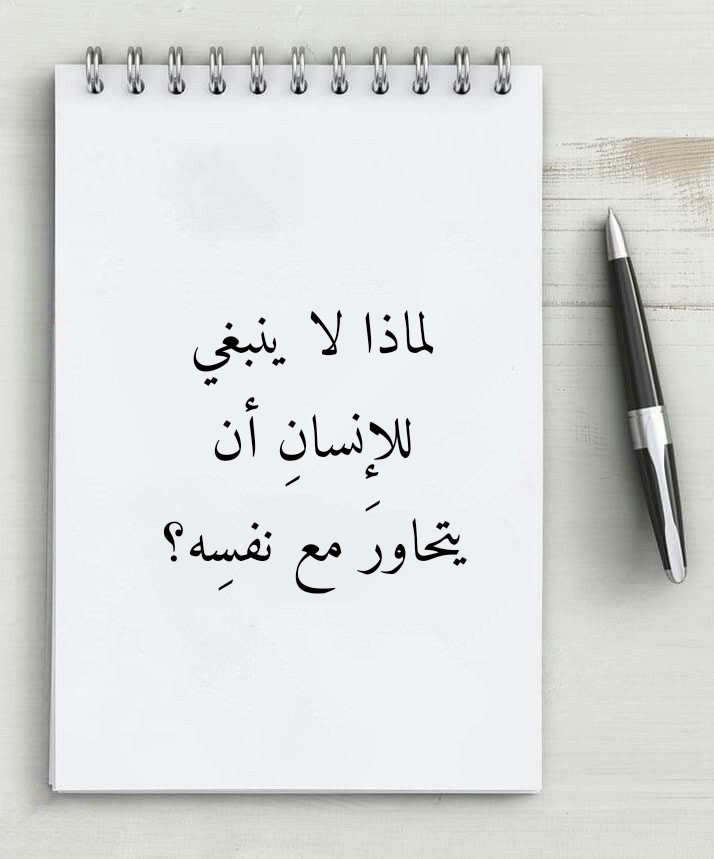 لماذا لا ينبغي
للإِنسانِ أن
يتحاورَ مع نفسِه؟